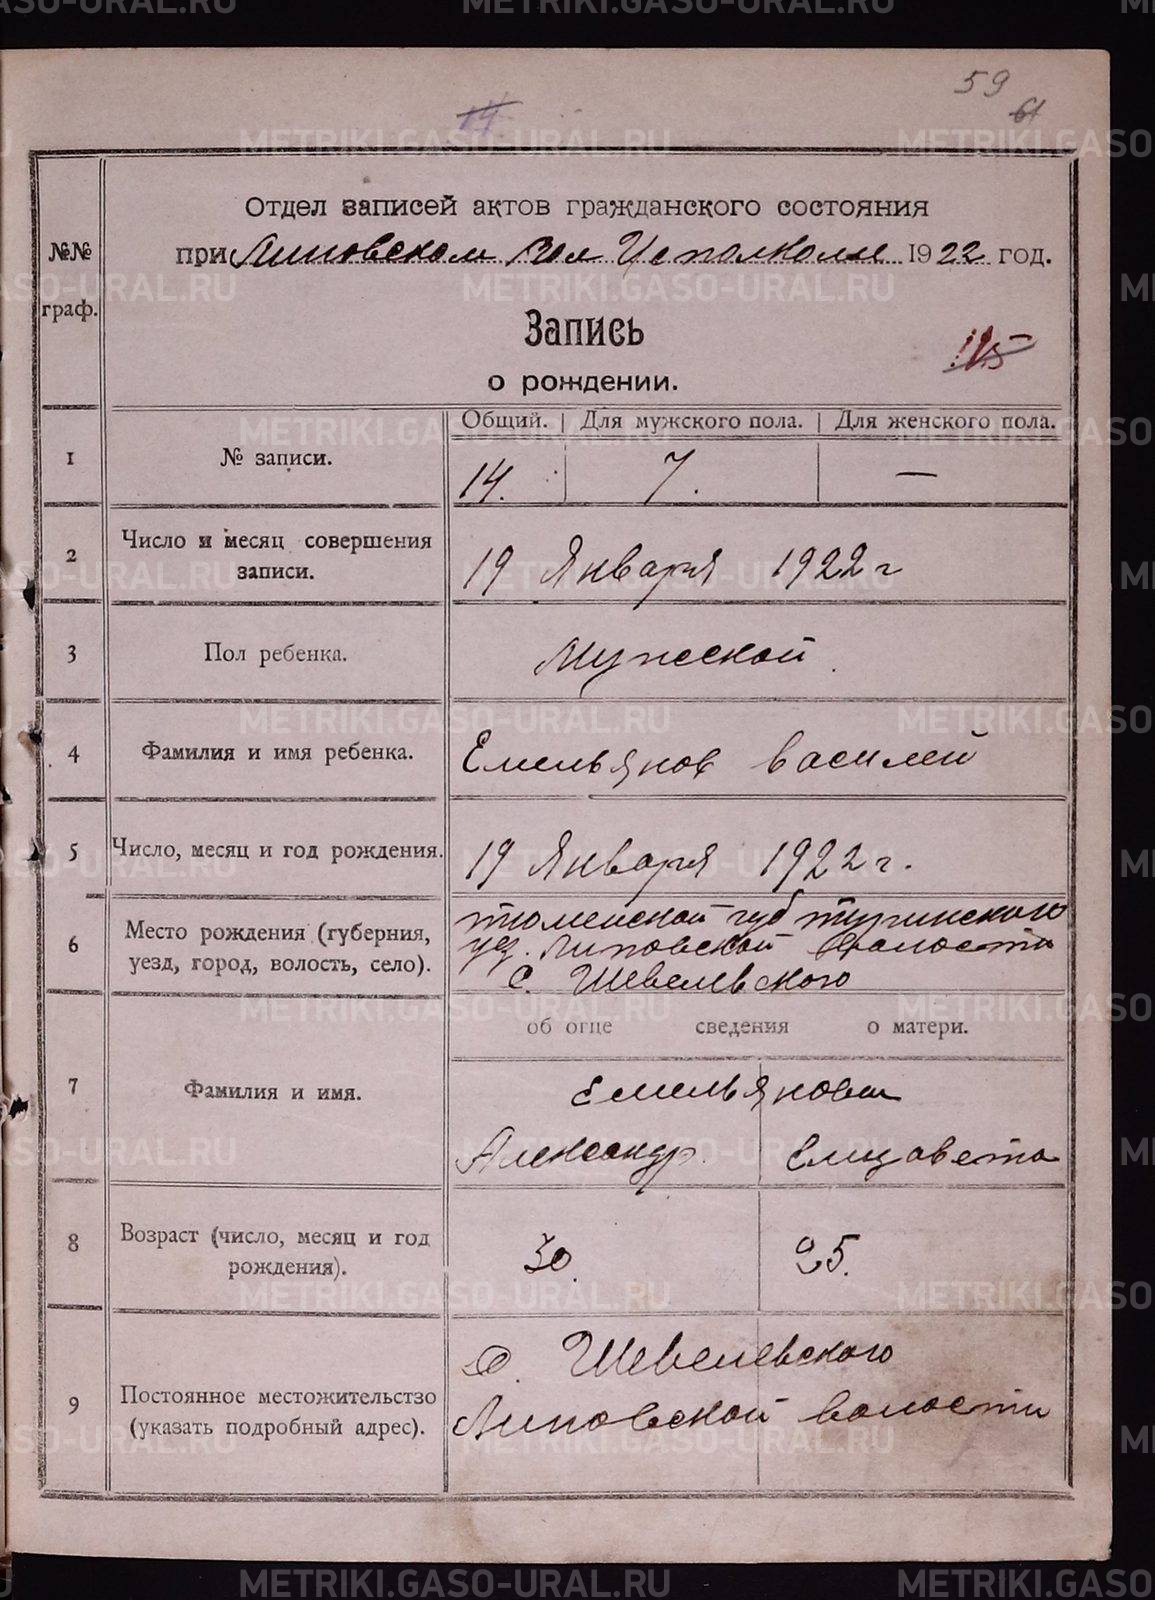 59
61
14.
Отдел записей актов гражданского состояния
при Липовском Вол Исполкоме 1922 год.
№№ граф.
Запись
о рождении.
Общий. | Для мужского пола. | Для женского пола.
1 № записи. 14. 7. —
2 Число и месяц совершения записи. 19 Января 1922 г
3 Пол ребенка. Мужской
4 Фамилия и имя ребенка. Емельянов Василей
5 Число, месяц и год рождения. 19 Января 1922 г.
6 Место рождения (губерния, уезд, город, волость, село).
тюменской губ туринского
уез. Липовской Волости
С. Шевелевского
об отце сведения о матери.
7 Фамилия и имя. Емельяновы
Александр. Елизавета
8 Возраст (число, месяц и год рождения). 30. 25.
9 Постоянное местожительство (указать подробный адрес).
Шевелевского
Липовской волости
METRIKI.GASO-URAL.RU